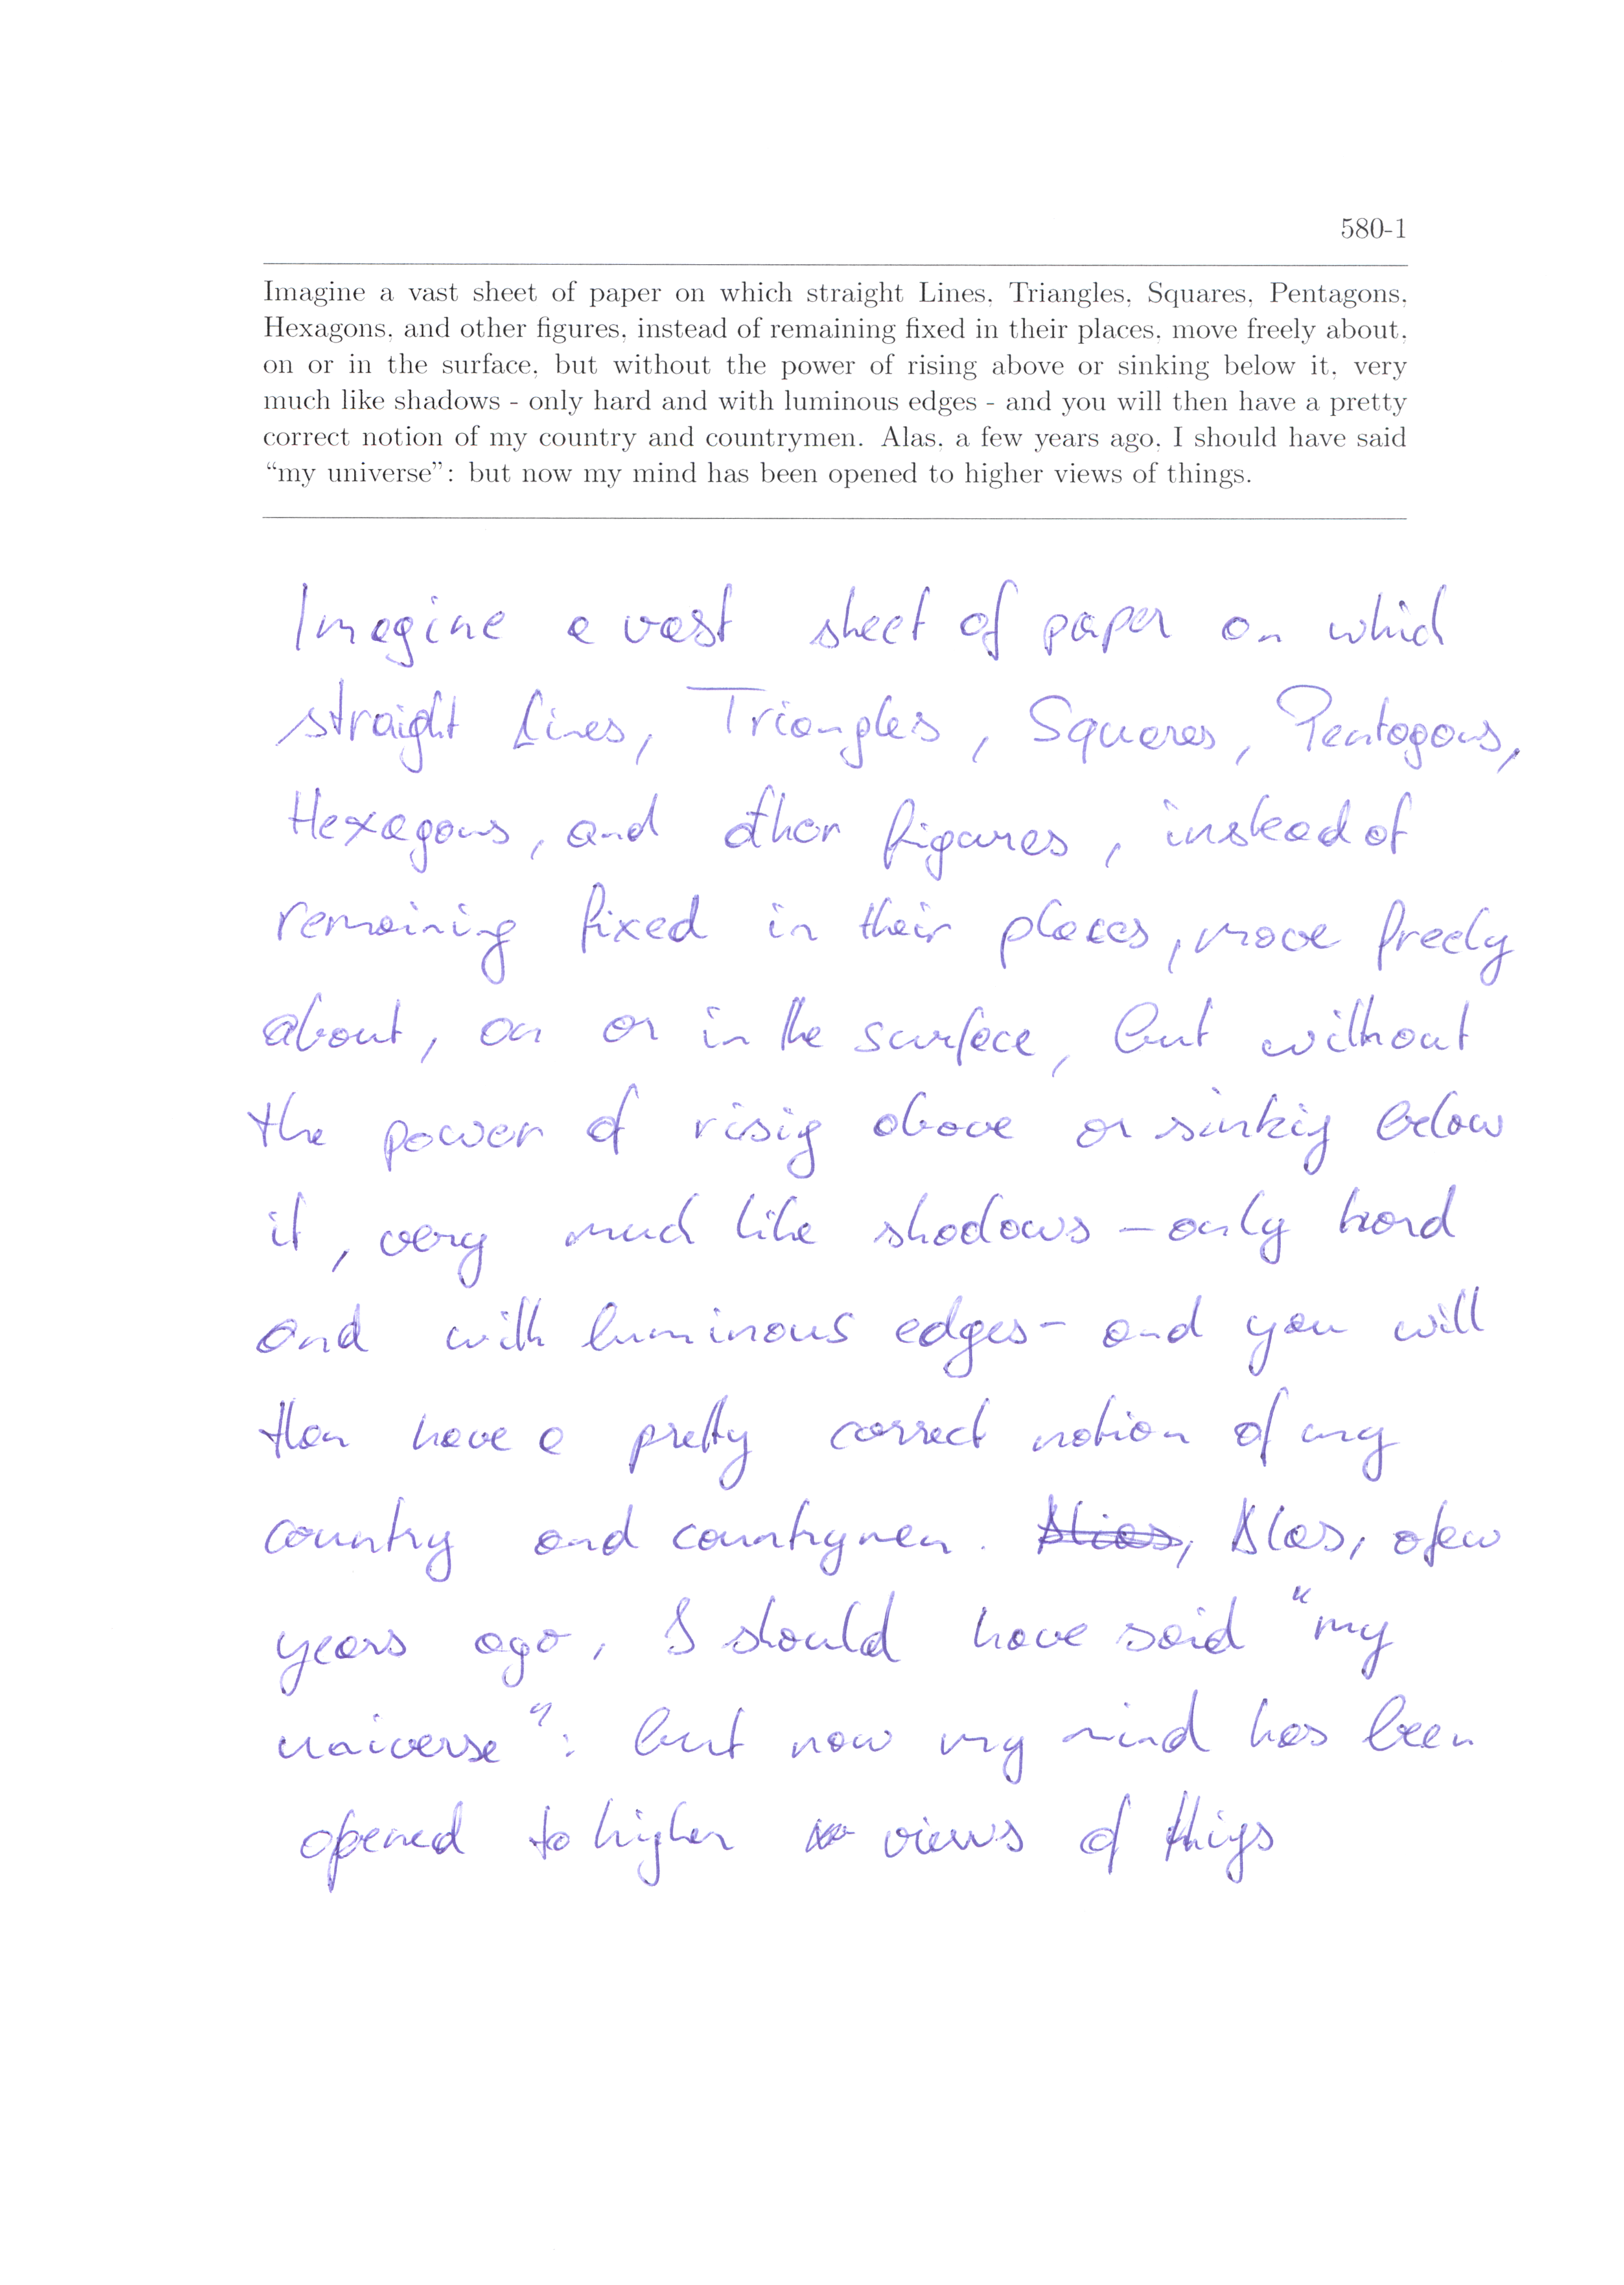 580-1
Imagine a vast sheet of paper on which straight Lines, Triangles, Squares, Pentagons,
Hexagons, and other figures, instead of remaining fixed in their places, move freely about,
on or in the surface, but without the power of rising above or sinking below it, very
much like shadows - only hard and with luminous edges - and you will then have a pretty
correct notion of my country and countrymen. Alas, a few years ago, I should have said
“my universe”: but now my mind has been opened to higher views of things.
Imagine a vast sheet of paper on which
straight Lines, Triangles, Squares, Pentagons,
Hexagons, and other figures, instead of
remaining fixed in their places, move freely
about, on or in the surface, but without
the power of risig above or sinkig below
it, very much like shadows - only hard
and with luminous edges - and you will
then have a pretty correct notion of my
country and countrymen. Alias, Alas, a few
years ago, I should have said "my
universe": but now my mind has been
opened to higher views of thigs